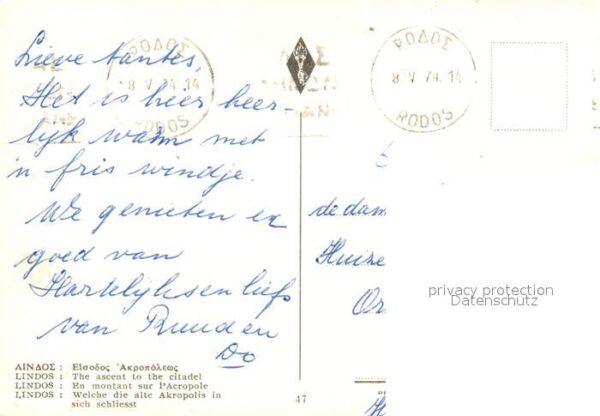 Lieve tantes,
Het is hier heer-
lijk warm met
'n fris windje.
We genieten er
goed van
Hartelijks en liefs
van Ruud en
Do
ΛΙΝΔΟΣ : Εἴσοδος Ἀκροπόλεως
LINDOS : The ascent to the citadel
LINDOS : En montant sur l'Acropole
LINDOS : Welche die alte Akropolis in
sich schliesst
47
ΡΟΔΟΣ
8 V 74. 14
RODOS
ΡΟΔΟΣ
8 V 74. 14
RODOS
de dam
Huize
privacy protection
Datenschutz